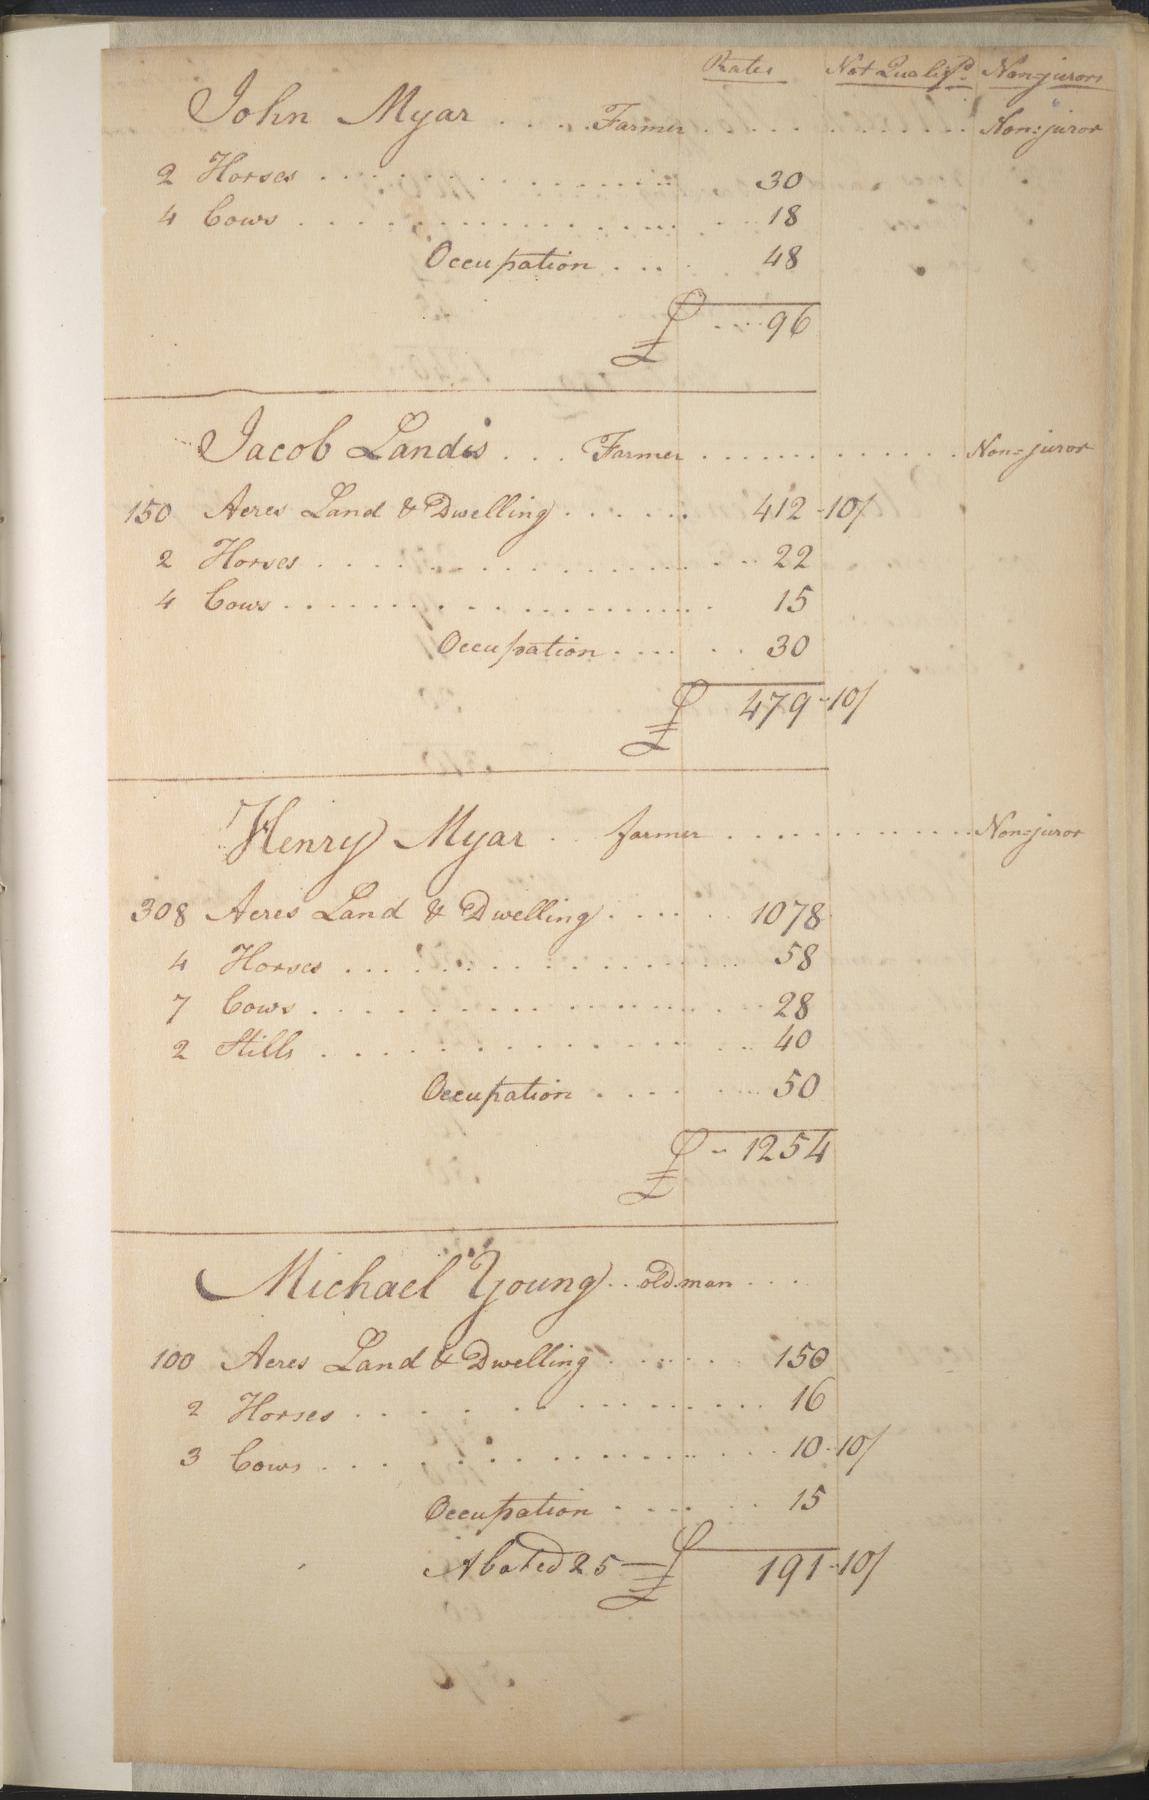 Rates Not Qualifd. Non=jurors
John Myar .... Farmer .......... Non=juror
2 Horses .......... 30
4 Cows .......... 18
Occupation .... 48
£ .... 96
Jacob Landis ... Farmer .......... Non=juror
150 Acres Land & Dwelling ...... 412-10/
2 Horses .......... 22
4 Cows .......... 15
Occupation .... 30
£ 479-10/
Henry Myar .. farmer .......... Non=juror
308 Acres Land & Dwelling ..... 1078
4 Horses .......... 58
7 Cows .......... 28
2 Stills .......... 40
Occupation .... 50
£ - 1254
Michael Young .. old man ...
100 Acres Land & Dwelling ..... 150
2 Horses .......... 16
3 Cows .......... 10-10/
Occupation .... 15
Abated 25— £ 191-10/